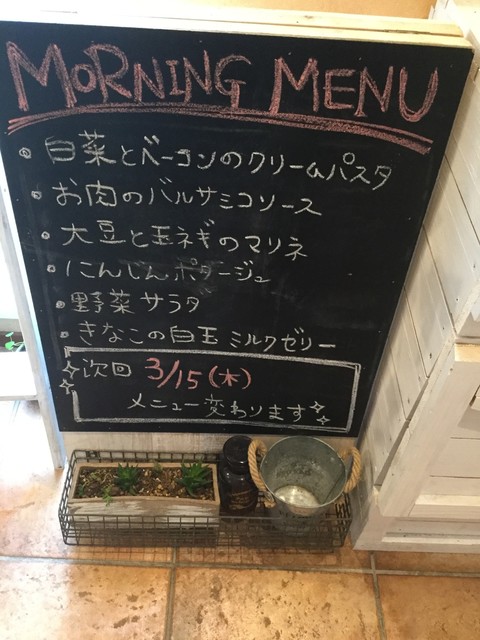 MORNING MENU
・白菜とベーコンのクリームパスタ
・お肉のバルサミコソース
・大豆と玉ネギのマリネ
・にんじんポタージュ
・野菜サラダ
・きなこの白玉ミルクゼリー
次回 3/15(木)
メニュー変わります